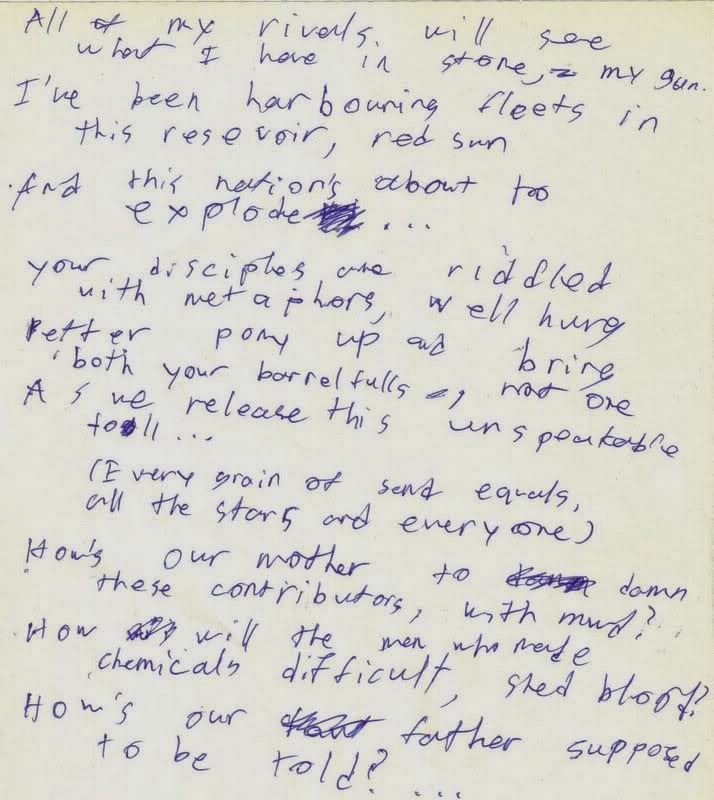 All of my rivals, will see
what I have in store, my gun.
I've been harbouring fleets in
this resevoir, red sun
And this nation's about to
explode ...
your disciples are riddled
with metaphors, well hung
Better pony up and bring
both your barrelfulls, not one
As we release this unspeakable
toll ...
(Every grain of sand equals,
all the stars and everyone)
How's our mother to damn
these contributors, with mud?
How will the men who made
chemicals difficult, shed blood?
How's our father supposed
to be told? ...